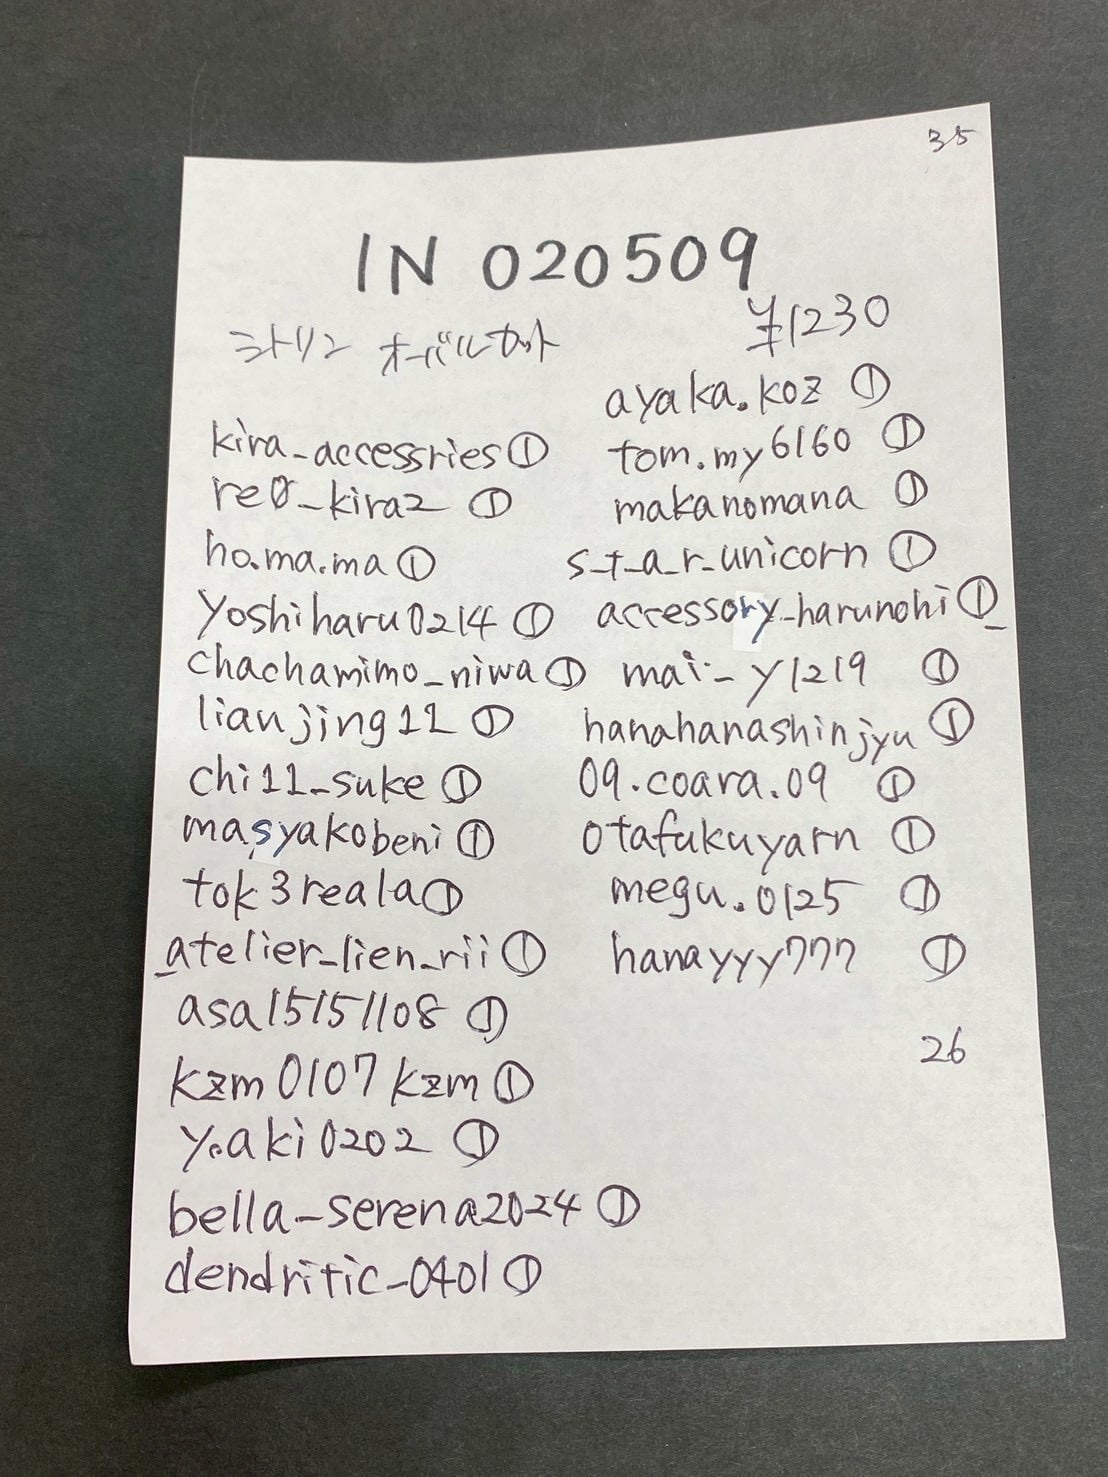 35
IN 020509
シトリン オーバルカット
¥1230
kira_accessries①
re0_kira2 ①
ho.ma.ma①
yoshiharu0214 ①
chachamimo_niwa①
lianjing11 ①
chi11_suke ①
masyakobeni ①
tok3reala①
_atelier_lien_rii①
asa15151108 ①
kzm0107kzm①
y.aki0202 ①
bella_serena2024 ①
dendritic_0401①
ayaka.koz ①
tom.my6160 ①
makanomana ①
s_t_a_r_unicorn ①
accessory_harunohi_①
mai_y1219 ①
hanahanashinjyu ①
09.coara.09 ①
otafukuyarn ①
megu.0125 ①
hanayyy777 ①
26